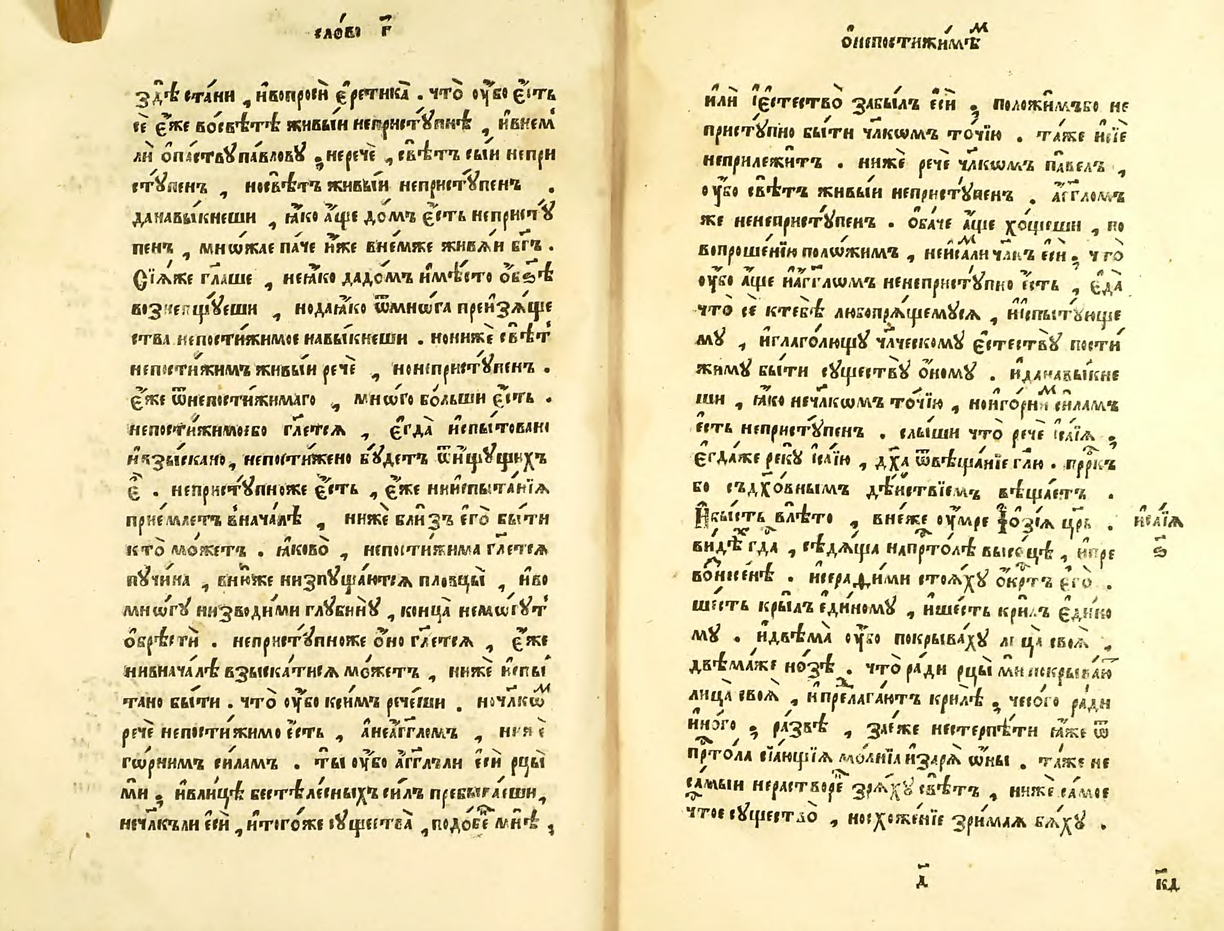 сло́во г҃
здѣ̀ ста́ни , и҆вопросѝ є҆ретика̀ . что̀ оу҆́бо є҆́сть
сѐ є҆́же восвѣ́тѣ живы́и непристу́пнѣ , и҆внемлѝ
ѻ҆па́ству па́влову , неречѐ , свѣ́тъ сы́и непри
сту́пенъ , носвѣ́тъ живы́и непристу́пенъ .
данавы́кнеши , ꙗ҆́ко а҆́ще до́мъ є҆́сть непристу́
пенъ , мно́жае па́че и҆́же вне́мже живѧ́и бг҃ъ .
Сїѧ́же гл҃аше , неꙗ҆́ко дадо́мъ и҆мѣ́сто ѡ҆бз̾ѣ̀
возне́пщꙋеши , нодаꙗ҆́ко ѿмно́га преи҆зѧ́ще
ства непостижи́мое навы́кнеши . нонижѐ свѣ́тъ
непости́жимъ живы́и речѐ , нонепристу́пенъ .
є҆́же ѿнепостижи́маго , мно́го бо́льши є҆́сть .
непости́жимоебо гл҃етсѧ , є҆гда̀ и҆спы́товано
и҆взы́скано, непости́жено бу́детъ ѿи҆́щущихъ
є҆̀ . непристу́пноже є҆́сть , є҆́же нии҆спыта́нїѧ
прїе́млетъ внача́лѣ , нижѐ бли́зъ є҆го̀ бы́ти
кто̀ мо́жетъ . ꙗ҆́ково , непости́жима гл҃етсѧ
пучи́на , вню́же низпуща́ютсѧ пловцы̀ , и҆во
мно́гу низводи́ми глубину̀ , конца̀ немо́гутъ
ѡ҆брѣстѝ . непристу́пноже ѻ҆́но гл҃етсѧ , є҆́же
нивнача́лѣ взыска́тисѧ мо́жетъ , нижѐ и҆спы́
тано бы́ти . что̀ оу҆́бо ксимъ рече́ши . ночл҃комъ
речѐ непости́жимо є҆́сть , а҆неа҆́гг҃ломъ , нижѐ
го́рнимъ си́ламъ . ты̀ оу҆́бо а҆́гг҃лъли є҆сѝ рцы̀
мѝ , и҆влицѣ̀ безтѣле́сныхъ си́лъ пребыва́еши,
нечл҃къли є҆сѝ , и҆того́же существа̀ , подо́бенъ мнѣ̀ ,
ѡ҆непостижи́мѣмъ
и҆лѝ і҆естество̀ забы́лъ є҆сѝ , положи́мъбо не
присту́пно бы́ти чл҃комъ то́чїю . та́же и҆сїѐ
неприлежи́тъ . нижѐ речѐ чл҃комъ па́велъ ,
оу҆́бо свѣ́тъ живы́и непристу́пенъ . а҆́гг҃ломъ
же ненепристу́пенъ . ѻ҆ба́че а҆́ще хо́щеши , по
вопроше́нїю поло́жимъ , неи҆са́мли чл҃къ є҆сѝ , что̀
оу҆́бо а҆́ще и҆а҆́гг҃ломъ ненепристу́пно є҆́сть , є҆да̀
что̀ сѐ ктебѣ̀ любопрѧ́щемусѧ , и҆спыту́юще
му , и҆глаго́лющу чл҃ческому є҆стеству̀ пости́
жиму бы́ти существу̀ ѻ҆́ному . и҆данавы́кне
ши , ꙗ҆́ко нечл҃комъ то́чїю , нои҆го́рнимъ си́ламъ
є҆́сть непристу́пенъ . слы́ши что̀ речѐ і҆са́їѧ ,
є҆гда́же реку̀ і҆са́їю , дх҃а ѿвѣща́нїе гл҃ю . прⷪ҇ркъ
бо съдх҃о́внымъ дѣ́йствїемъ вѣща́етъ .
И҆бы́сть влѣ́то , вне́же оу҆́мре Ѻ҆зі́ѧ цр҃ь .
ви́дѣхъ гдⷭ҇а , сѣдѧ́ща напрⷭ҇то́лѣ высо́цѣ , и҆пре
вознесе́нѣ . и҆серафи́ми стоѧ́ху ѻ҆́крⷭ҇тъ є҆го̀ .
ше́сть кры́лъ є҆ди́ному , и҆ше́сть кри́лъ є҆ди́но
му . и҆двѣма̀ оу҆́бо покрыва́ху лица̀ своѧ̀ ,
двѣма́же но́зѣ . что̀ ра́ди рцы̀ мѝ покрыва́ют
лица̀ своѧ̀ , и҆прⷣелага́ютъ крилѣ̀ , чесо́го ра́ди
и҆но́го , ра́звѣ , зае́же нестерпѣ́ти ꙗ҆́же ѿ
прⷭ҇то́ла сїѧ́ющїѧ мо́лнїѧ и҆зарѧ̀ ѡ҆́ны . та́же не
са́мыи нераство́ренъ зрѧ́ху свѣ́тъ , нижѐ са́мое
чⷭ҇тое существо̀ , носхожде́нїе зри́маѧ бѧ́ху .
и҆са́їѧ
ѕ҃
д҃
к҃д